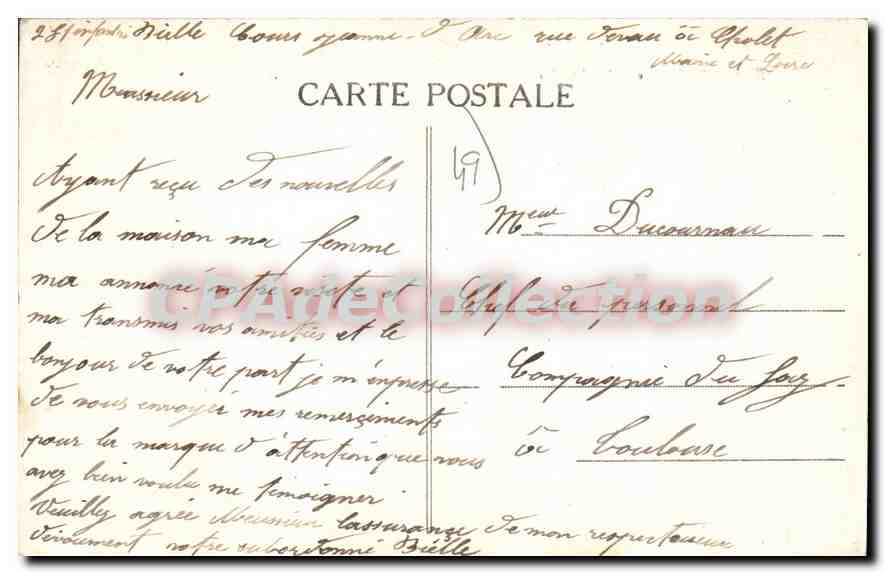 infanterie Bielle Cours Jeanne-d'Arc rue à Cholet
Maine et Loire
Monsieur
CARTE POSTALE
49
Ayant reçu des nouvelles
de la maison ma femme
ma annoncé votre visite et
ma transmis vos amitiés et le
bonjour de votre part je m'empresse
de vous envoyér mes remerçiments
pour la marque d'attention que vous
avez bien voulu me témoigner
Veuillez agrée Monsieur l'assurance de mon respectueux
dévoument votre subordonné Bielle
Meur Ducournau
Chef du personnel
Compagnie du Gaz
à Toulouse
CPADeCollection